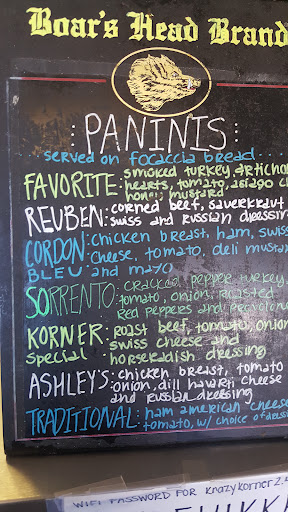 Boar's Head Brand
PANINIS:
served on focaccia bread...
FAVORITE: smoked turkey, articho
hearts, tomato, asiago ch
honey mustard
REUBEN: corned beef, sauerkraut
swiss and russian dressing
CORDON BLEU: chicken breast, ham, swiss
cheese, tomato, deli mustard
and mayo
SORRENTO: cracked pepper turkey,
tomato, onion, roasted
Red peppers and provolone
KORNER Special: Roast beef, tomato, onion
swiss cheese and
horseradish dressing
ASHLEY'S: chicken breast, tomato
onion, dill havarti cheese
and russian dressing
TRADITIONAL: ham american cheese
tomato, w/ choice of dressi
WIFI PASSWORD FOR Krazykorner2.4